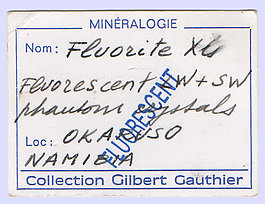 MINÉRALOGIE
Nom: Fluorite XLs
Fluorescent LW + SW
phantom crystals
FLUORESCENT
Loc: OKARUSO
NAMIBIA
Collection Gilbert Gauthier